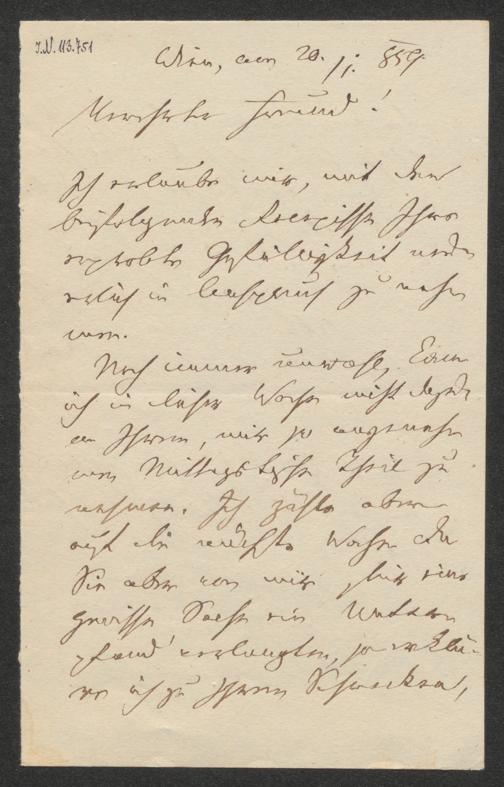 I.N. 113.751
Wien, am 20./1. 859
Verehrter Freund!
Ich erlaube mir, mit dem
beifolgenden Recepisse Ihre
erprobte Gefälligkeit neu
erlich in Anspruch zu neh
men.
Noch immer unwohl, kann
ich in dieser Woche nicht
an Ihrem, mir so angeneh
men Mittags Tische Theil zu
nehmen. Ich zähle aber
auf die nächste Woche. Da
Sie aber von mir für eine
gewisse Sache ein Unter
pfand verlangten, so erklä-
re ich zu Ihrem Schrecken,